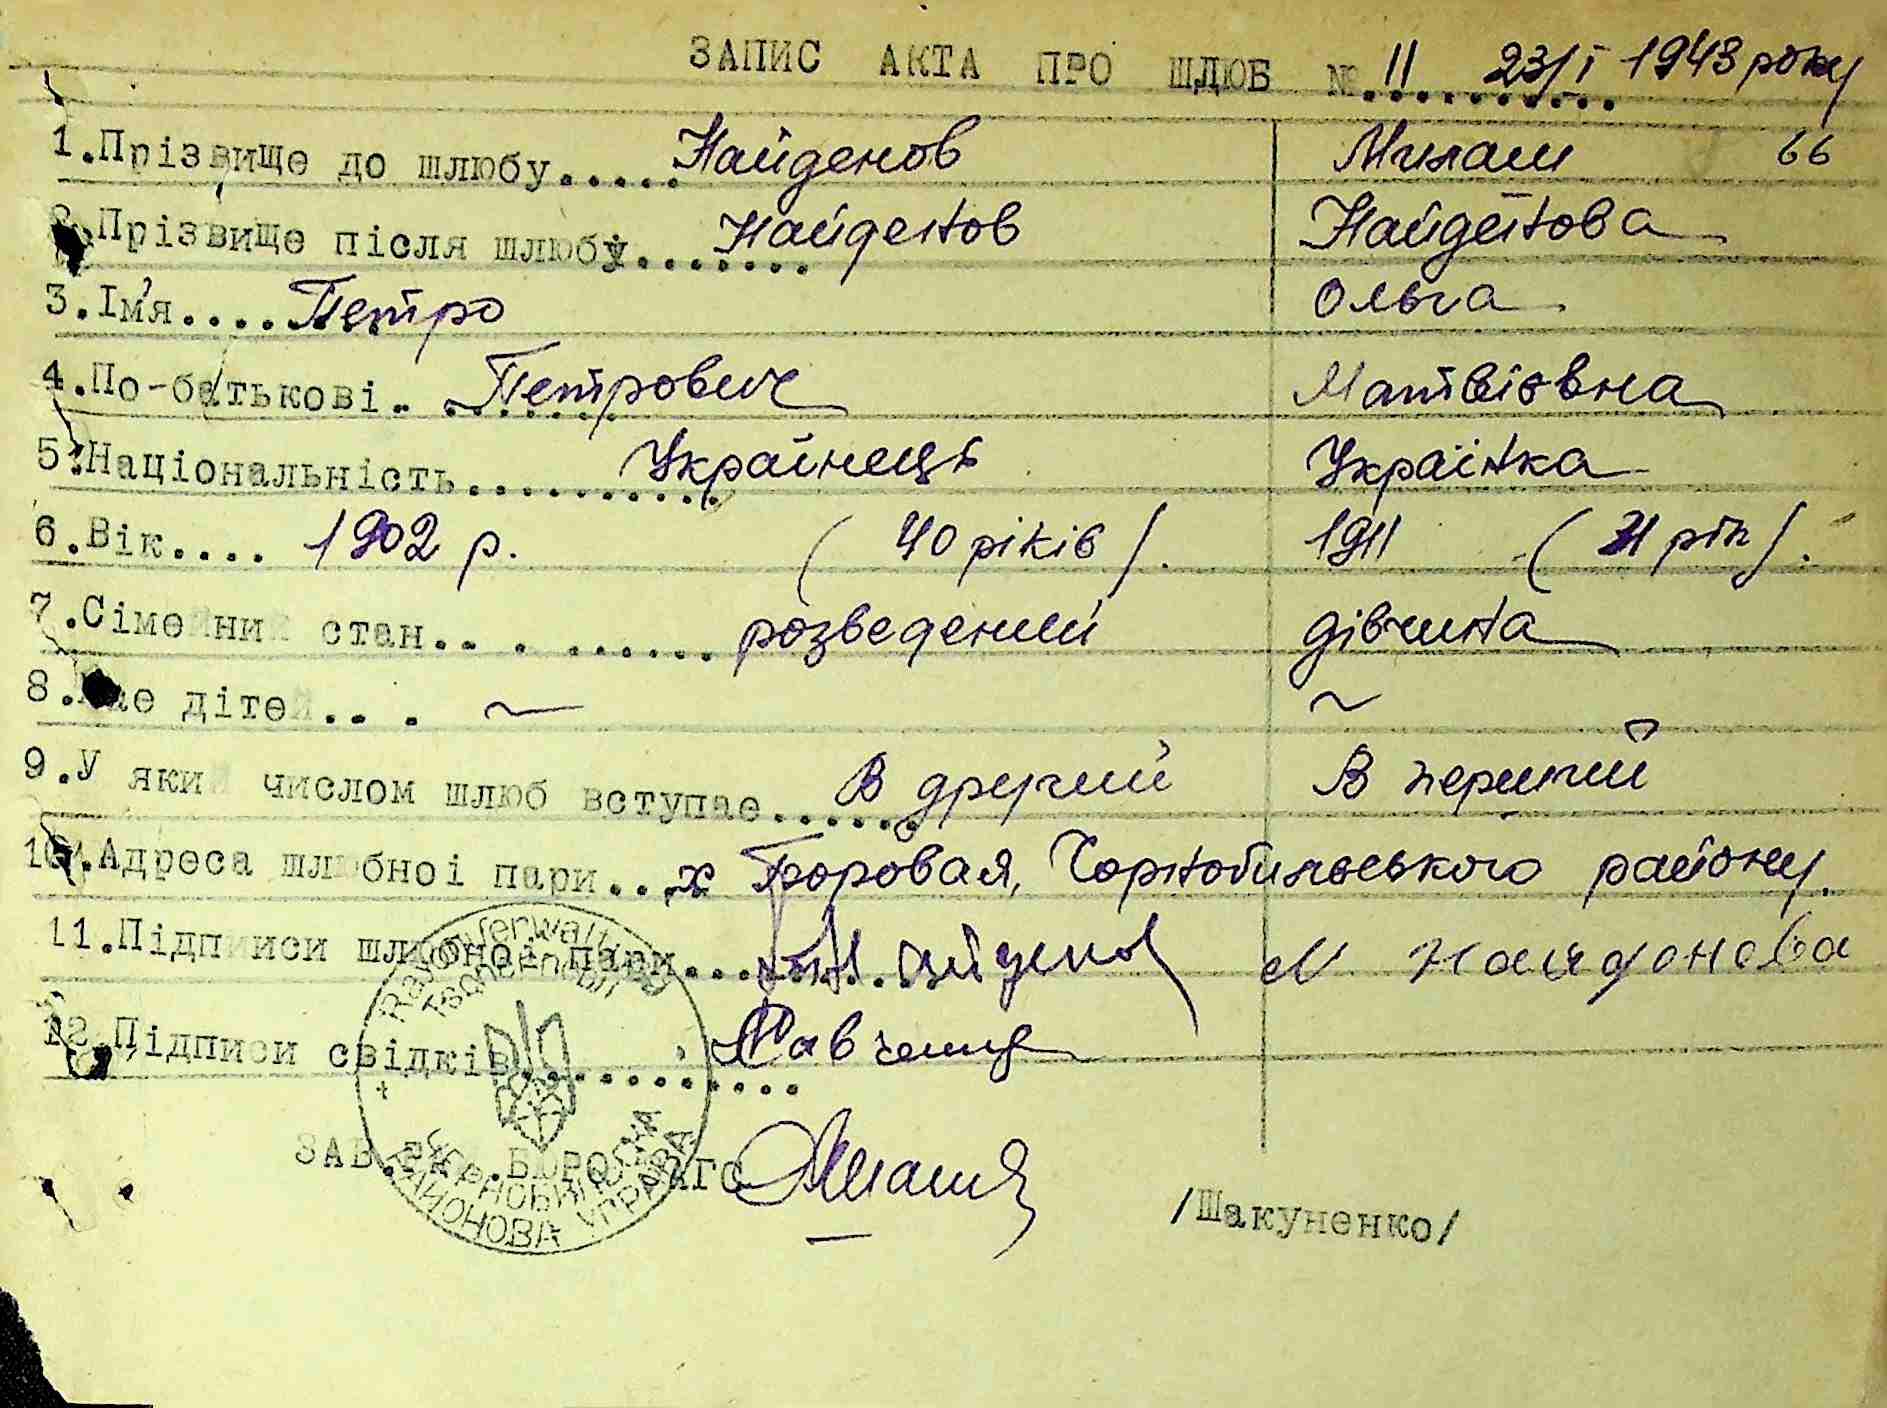 ЗАПИС АКТА ПРО ШЛЮБ № 11 23/I 1943 року
1.Прізвище до шлюбу..... Найденов Милаш 66
2.Прізвище після шлюбу........ Найденов Найденова
3.Ім'я.... Петро Ольга
4.По-батькові. ........ Петрович Матвієвна
5.Національність.......... Українець Українка
6.Вік.... 1902 р. (40 років). 1911 (31 рік).
7.Сімейний стан.. . ...... розведений дівчина
8.Має дітей.. . ~ ~
9.У який числом шлюб вступає...... В другий В перший
10.Адреса шлюбноі пари... х Боровая, Чорнобильського району.
11.Підписи шлюбноі пари....... Найденов Найдонова
12.Підписи свідків............ Савченко
Rayonverwaltung
РАЙОНОВА УПРАВА
ЗАВ. БЮРО ЗАГС /Шакуненко/